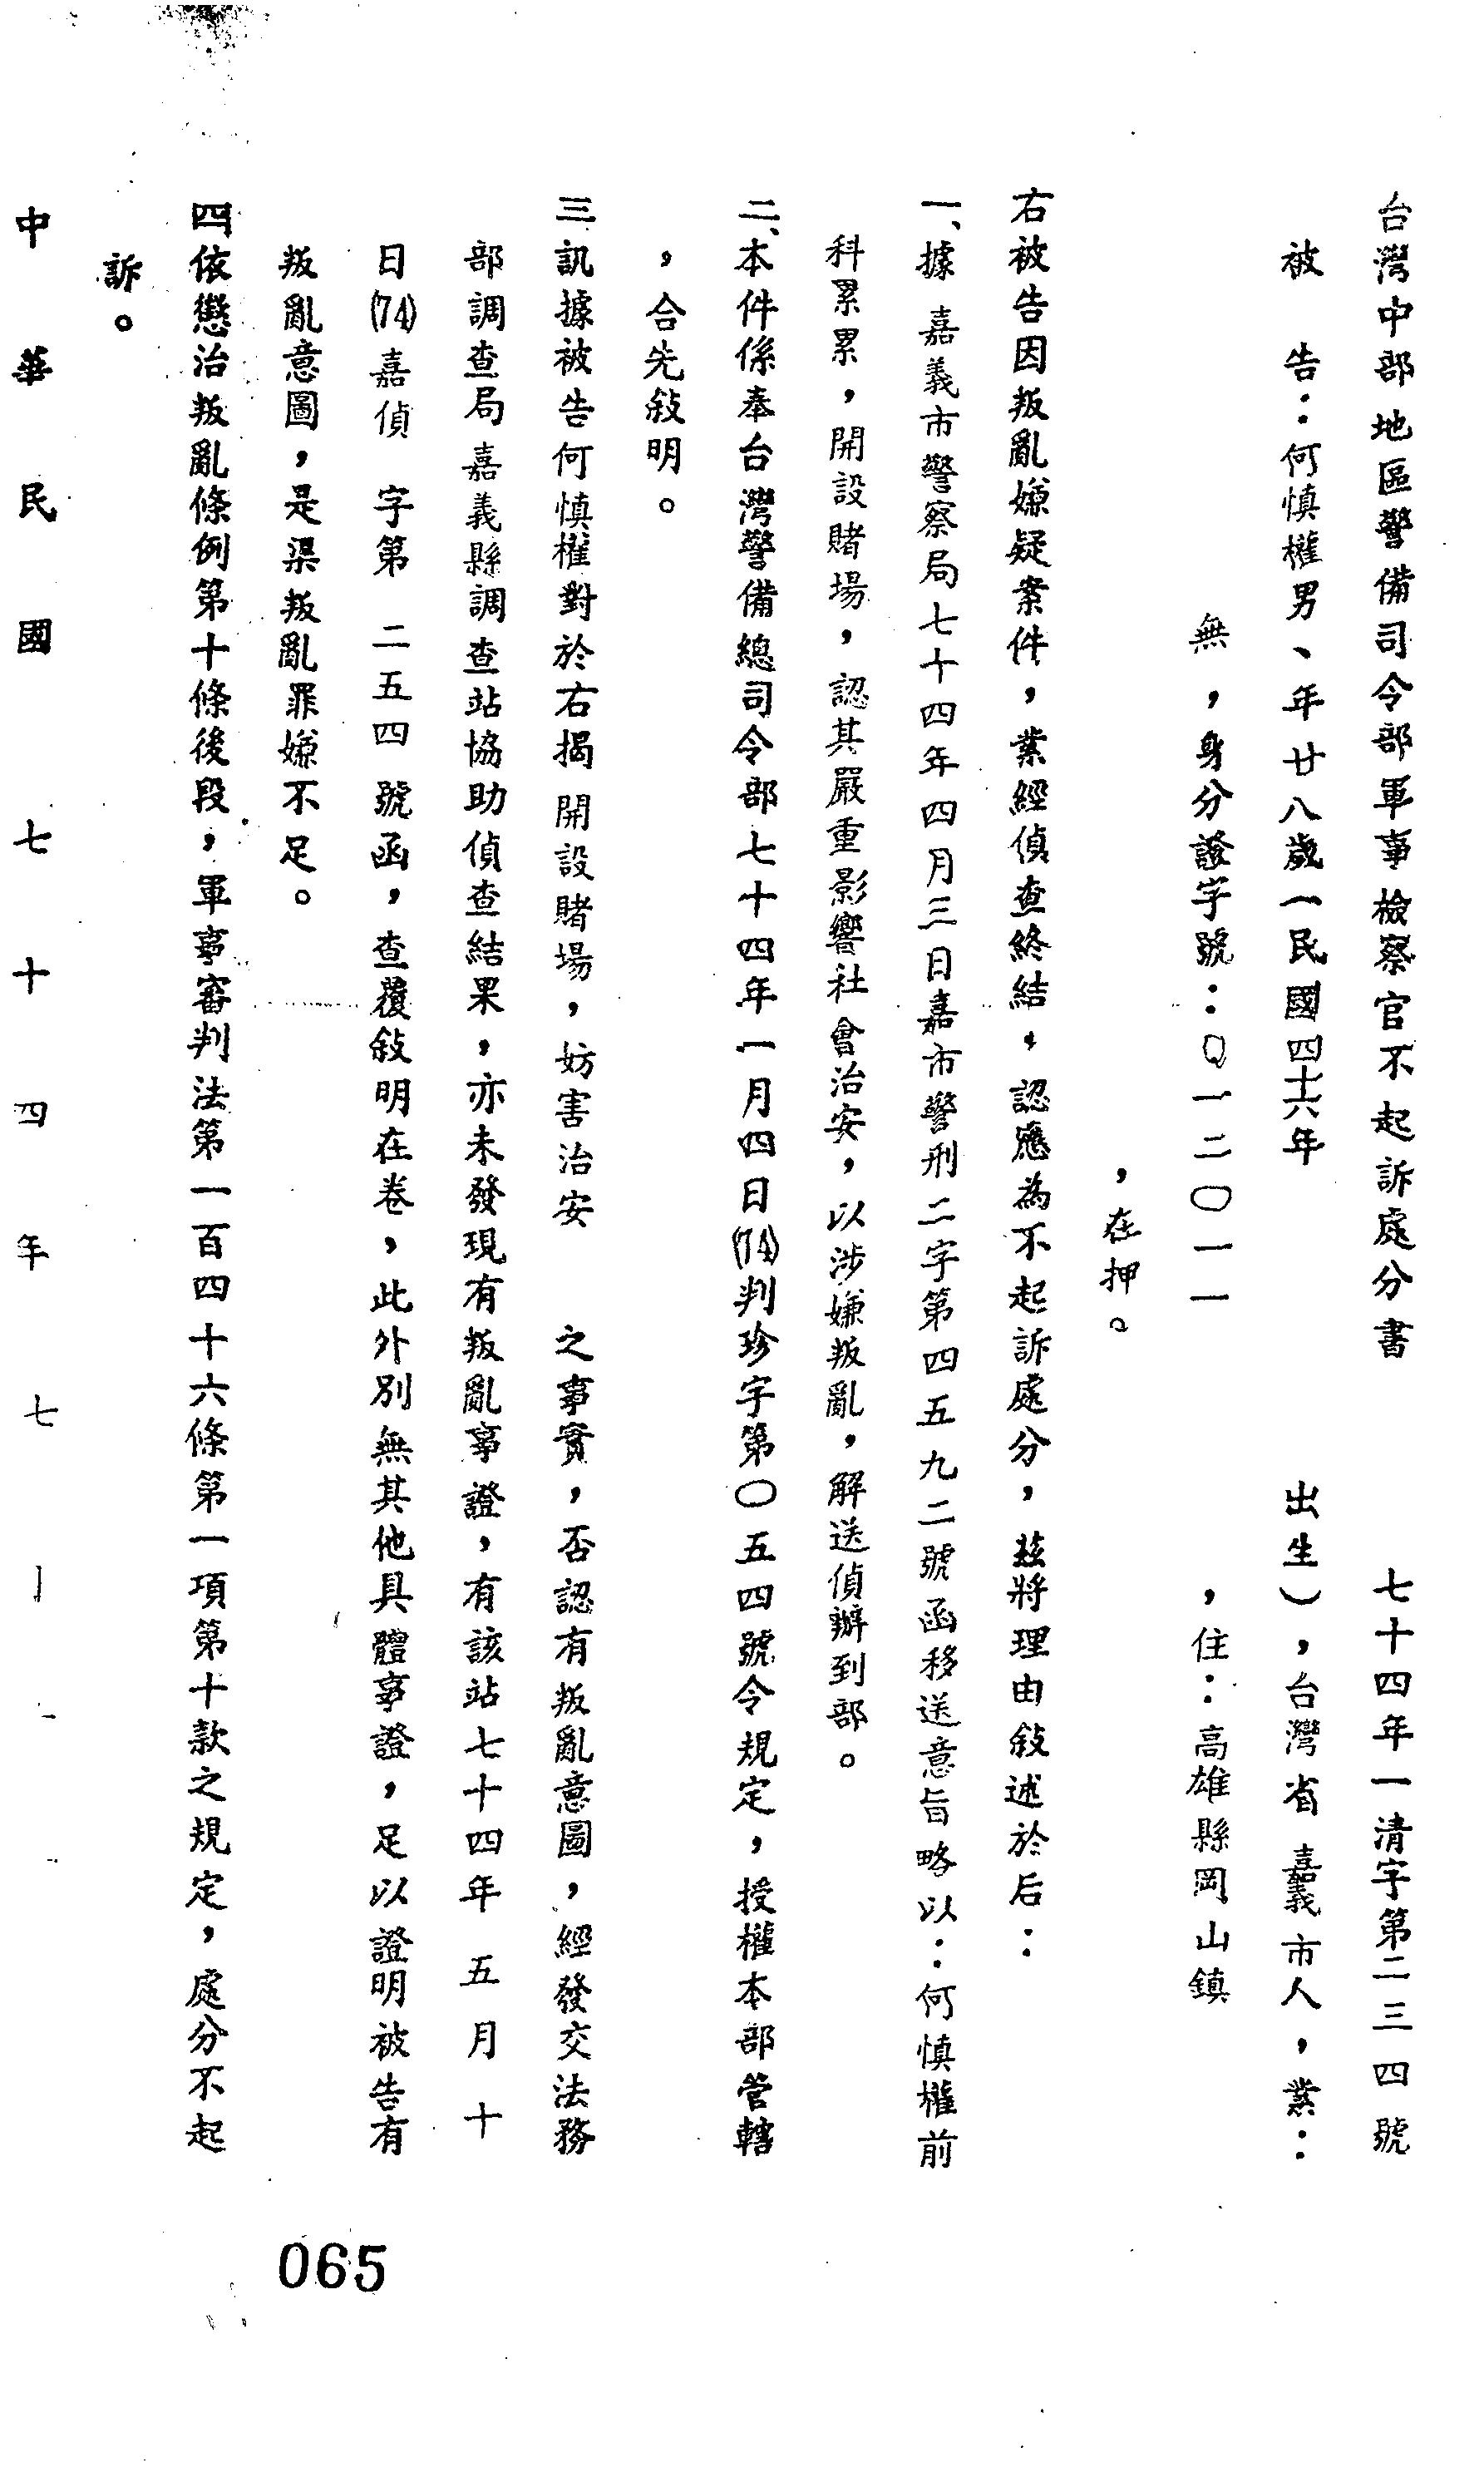 台灣中部地區警備司令部軍事檢察官不起訴處分書 七十四年一清字第二三四號
被告：何慎權男、年廿八歲（民國四十六年 出生），台灣省嘉義市人，業：
無，身分證字號：Q一二〇一一 ，住：高雄縣岡山鎮
，在押。
右被告因叛亂嫌疑案件，業經偵查終結，認應為不起訴處分，茲將理由敍述於后：
一、據嘉義市警察局七十四年四月三日嘉市警刑二字第四五九二號函移送意旨略以：何慎權前
科累累，開設賭場，認其嚴重影響社會治安，以涉嫌叛亂，解送偵辦到部。
二、本件係奉台灣警備總司令部七十四年一月四日(74)判珍字第〇五四號令規定，授權本部管轄
，合先敍明。
三訊據被告何慎權對於右揭開設賭場，妨害治安 之事實，否認有叛亂意圖，經發交法務
部調查局嘉義縣調查站協助偵查結果，亦未發現有叛亂事證，有該站七十四年五月十
日(74)嘉偵字第二五四號函，查覆敍明在卷，此外別無其他具體事證，足以證明被告有
叛亂意圖，是渠叛亂罪嫌不足。
四依懲治叛亂條例第十條後段，軍事審判法第一百四十六條第一項第十款之規定，處分不起
訴。
中華民國七十四年七
065